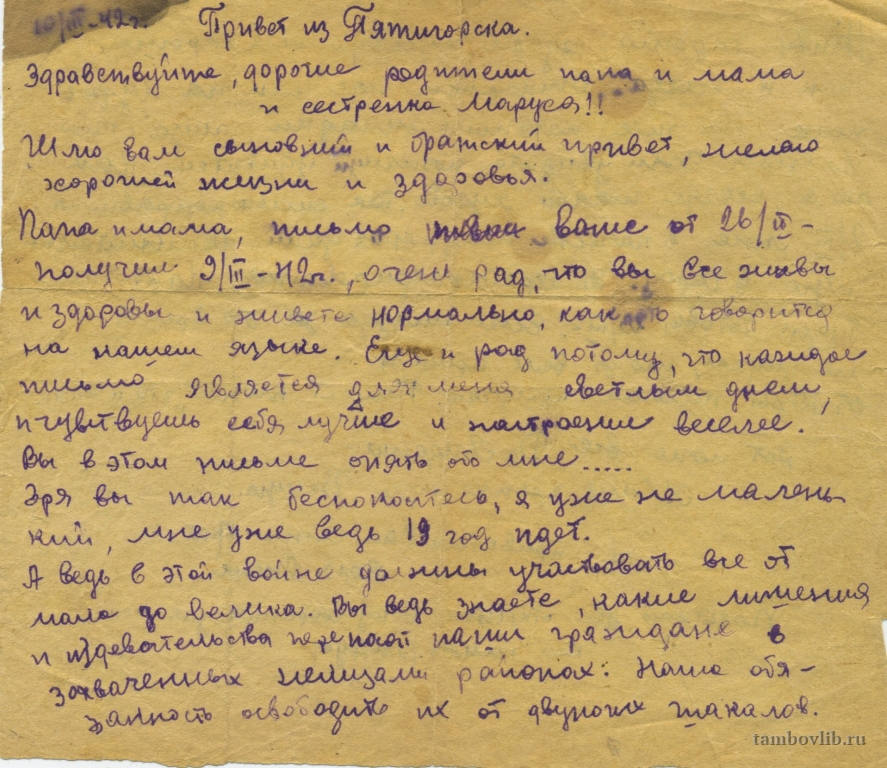 10/III-42г. Привет из Пятигорска.
Здравствуйте, дорогие родители папа и мама
и сестренка Маруся!!
Шлю вам сыновний и братский привет, желаю
хорошей жизни и здоровья.
Папа и мама, письмо ваше от 26/II-
получил 9/III-42г., очень рад, что вы все живы
и здоровы и живете нормально, как это говорится
на нашем языке. Еще и рад потому, что каждое
письмо является для меня светлым днем,
и чувствуешь себя лучше и настроение веселее.
Вы в этом письме опять обо мне.....
Зря вы так беспокоитесь, я уже не малень-
кий, мне уже ведь 19 год идет.
А ведь в этой войне должны участвовать все от
мала до велика. Вы ведь знаете, какие лишения
и издевательства терпят наши граждане в
захваченных немцами районах. Наша обя-
занность освободить их от двуногих шакалов.
tambovlib.ru